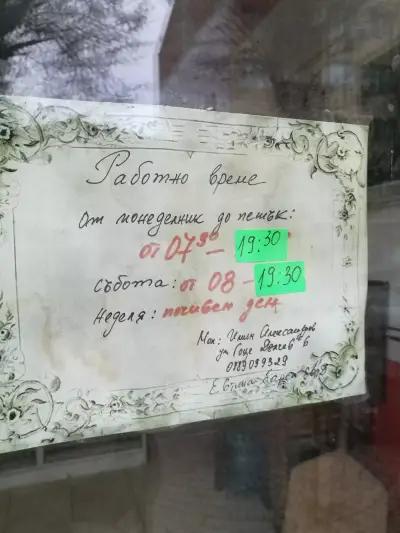 Работно време
От понеделник до петък:
от 07³⁰ – 19:30
Събота: от 08 – 19:30
Неделя: почивен ден
Александров
ул Гоце Делчев 6